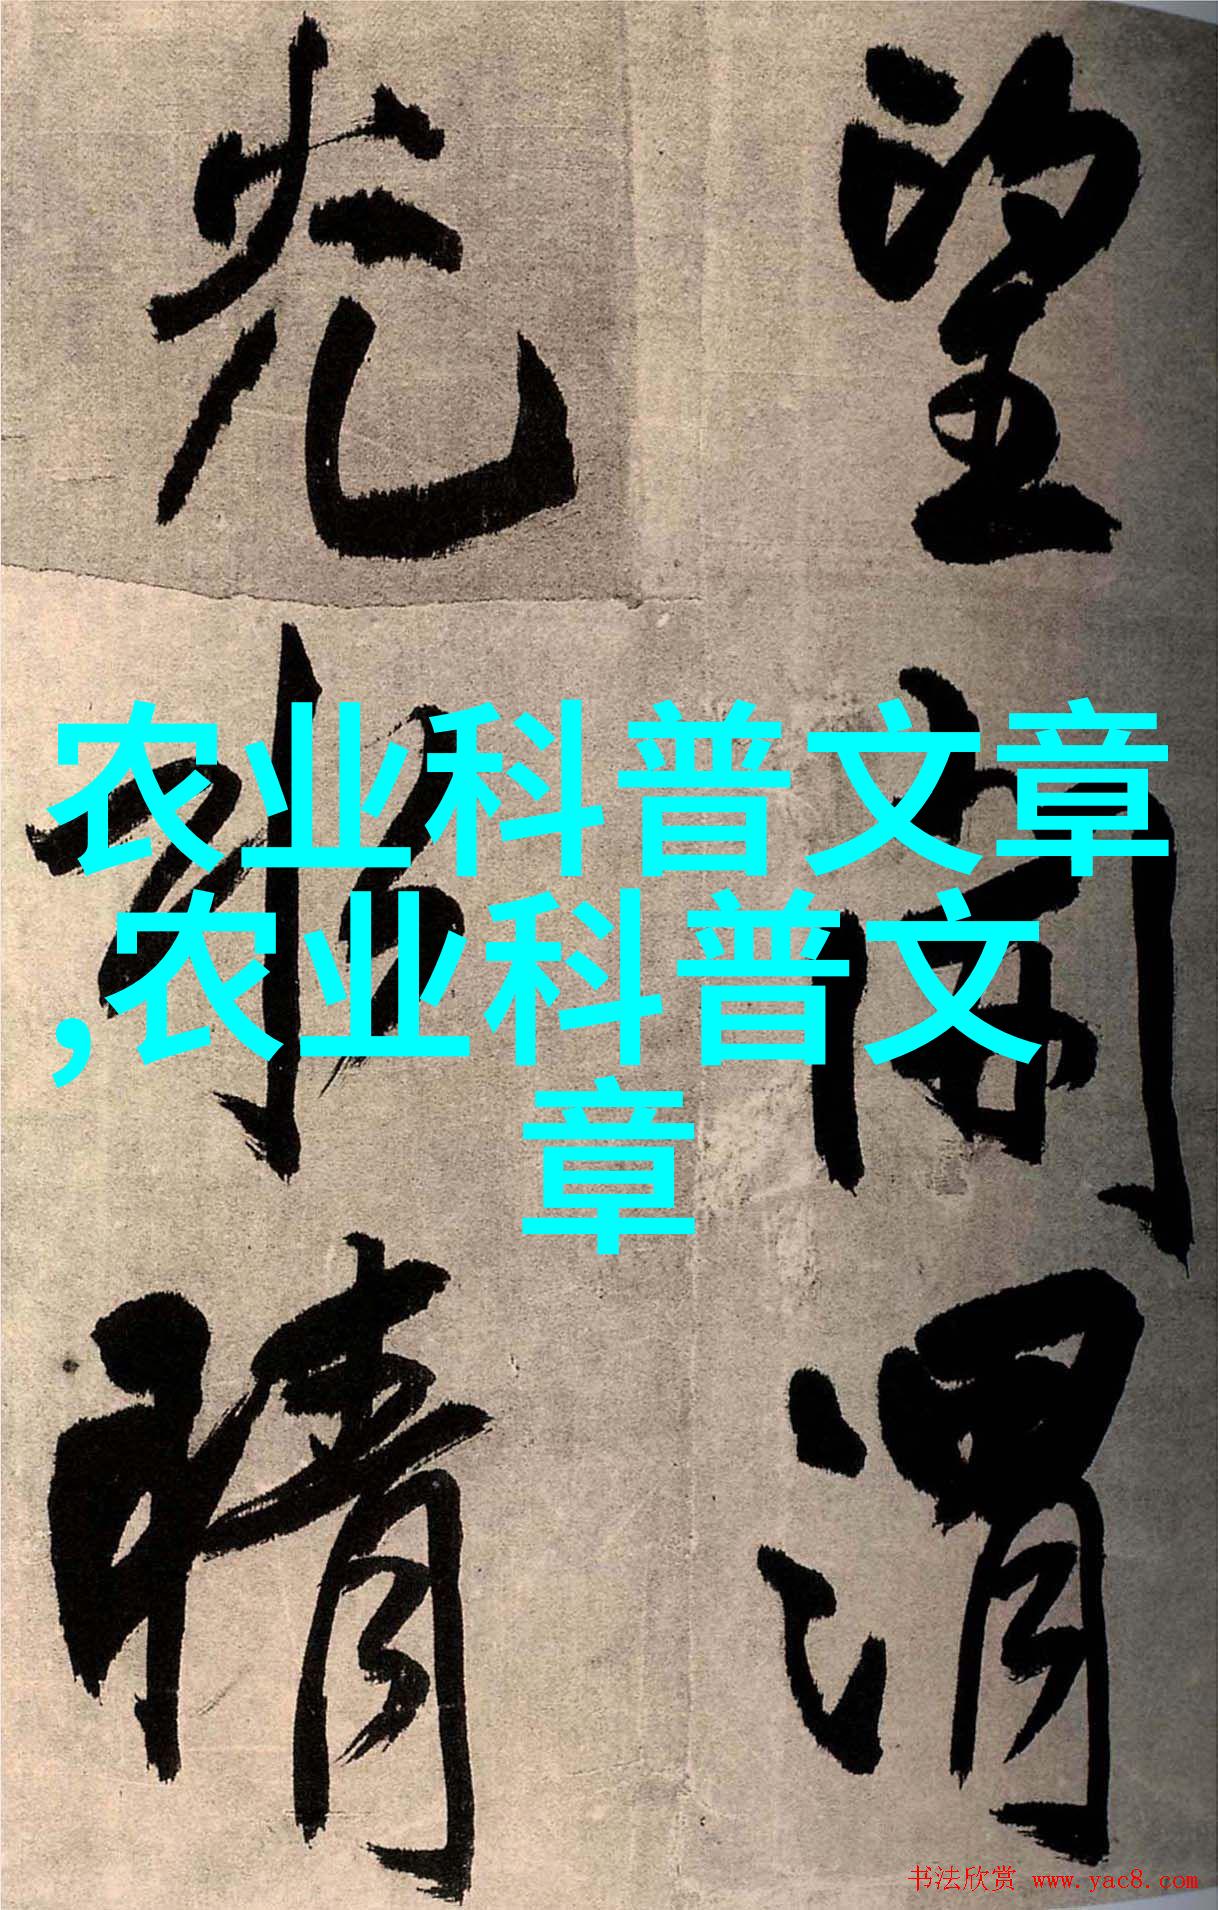 望
渭
光
晴
农业科普文章
,农业科普文
章
书法欣赏 www.yac8.com